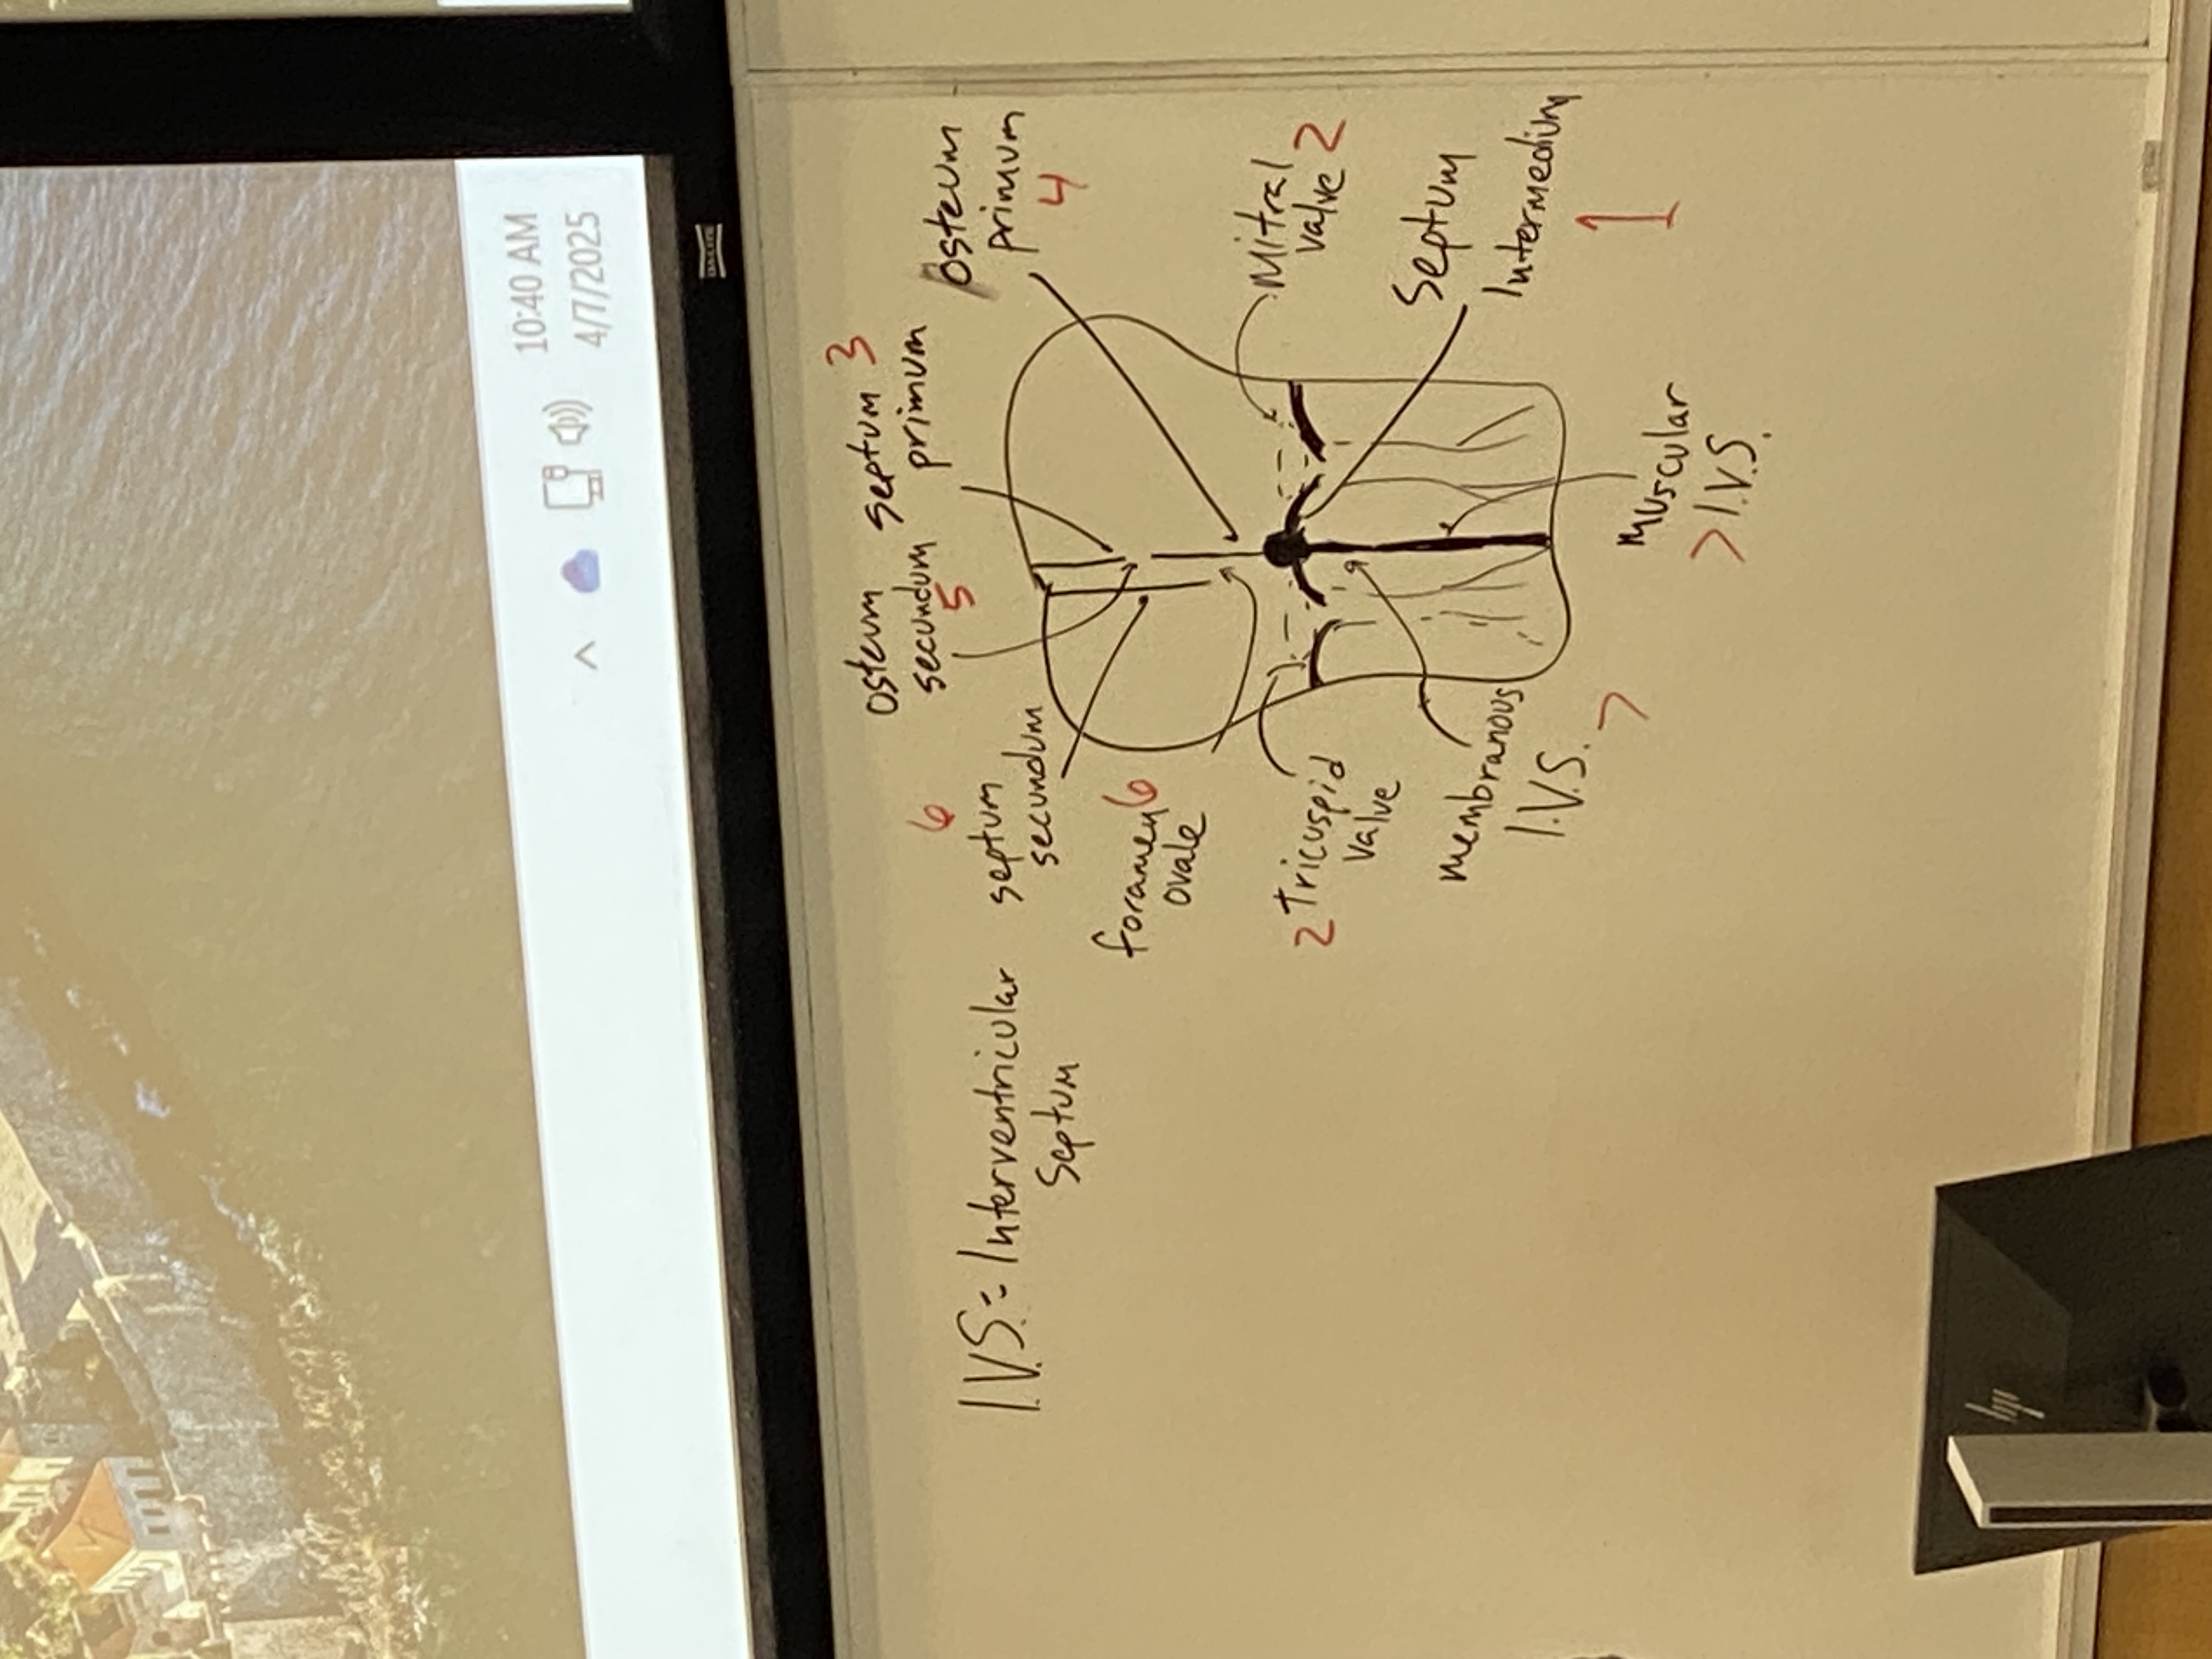 10:40 AM
4/7/2025
DA-LITE
I.V.S. = Interventricular
Septum
6
septum
secundum
osteum
secundum
5
septum 3
primum
osteum
primum
4
foramen 6
ovale
mitral
valve 2
2 Tricuspid
valve
Septum
Intermedium
1
membranous
I.V.S. 7
muscular
7 I.V.S.
hp